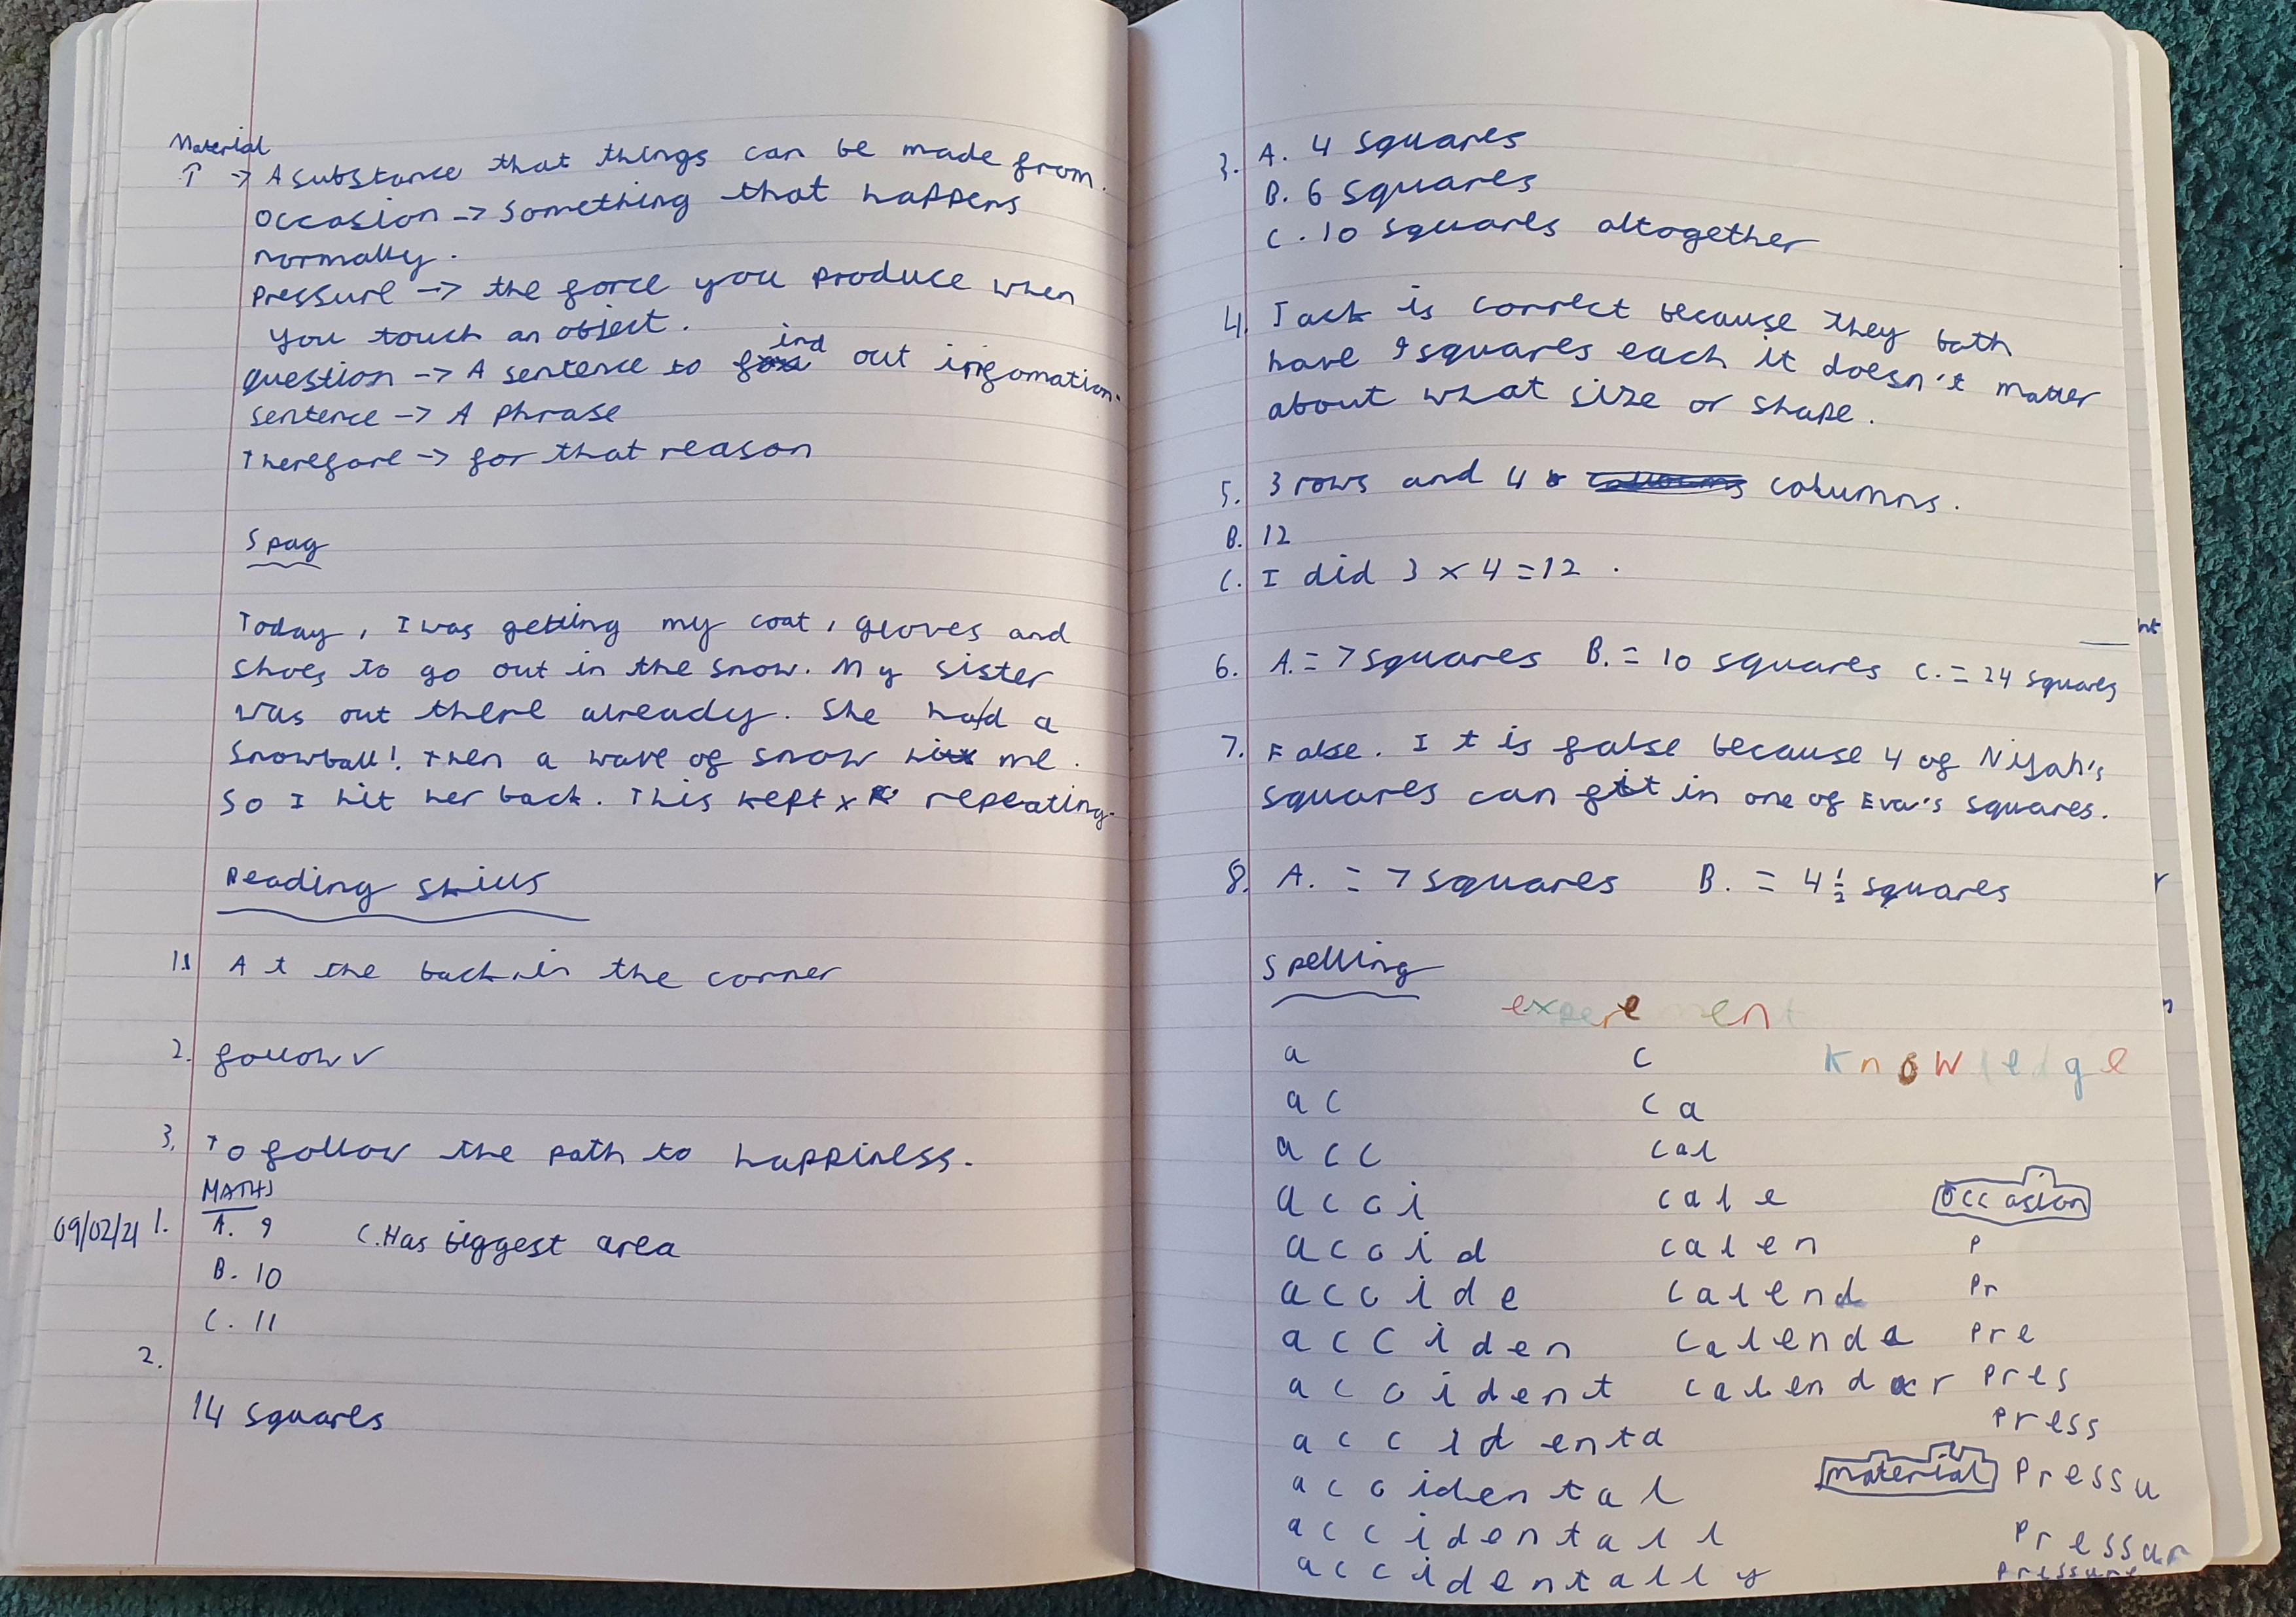 Material
↑ -> A substance that things can be made from.
occasion -> Something that happens
normally.
Pressure -> the force you produce when
you touch an object.
question -> A sentence to find out infomation.
sentence -> A phrase
Therefore -> for that reason
Spag
Today, I was getting my coat, gloves and
shoes to go out in the snow. My sister
was out there already. She had a
snowball! Then a wave of snow hit me.
So I hit her back. This kept repeating.
Reading skills
1. At the back in the corner
2. follow
3. To follow the path to happiness.
MATHS
09/02/21 1. A. 9 C. Has biggest area
B. 10
C. 11
2.
14 squares
3. A. 4 squares
B. 6 squares
C. 10 squares altogether
4. Jack is correct because they both
have 9 squares each it doesn't matter
about what size or shape.
5. 3 rows and 4 columns.
B. 12
C. I did 3 x 4 = 12.
6. A. = 7 squares B. = 10 squares C. = 24 squares
7. False. It is false because 4 of Niyah's
squares can fit in one of Eva's squares.
8. A. = 7 squares B. = 4 1/2 squares
Spelling
a c knowledge
a c c a
a c c c a l
a c c i c a l e occasion
a c c i d c a l e n P
a c c i d e c a l e n d Pr
a c c i d e n c a l e n d a Pre
a c c i d e n t c a l e n d a r Pres
Press
a c c i d e n t a
a c c i d e n t a l material Pressu
a c c i d e n t a l l Pressur
a c c i d e n t a l l y Pressure